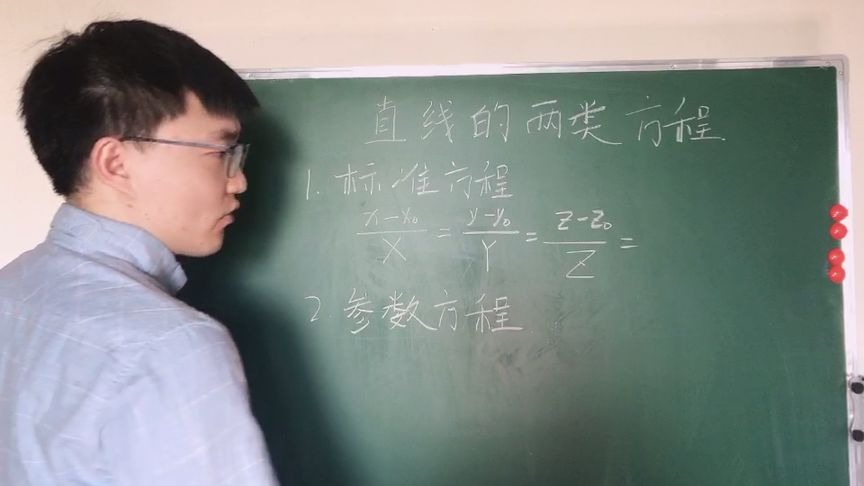 直线的两类方程
1. 标准方程
x-x₀/X = y-y₀/Y = z-z₀/Z =
2. 参数方程